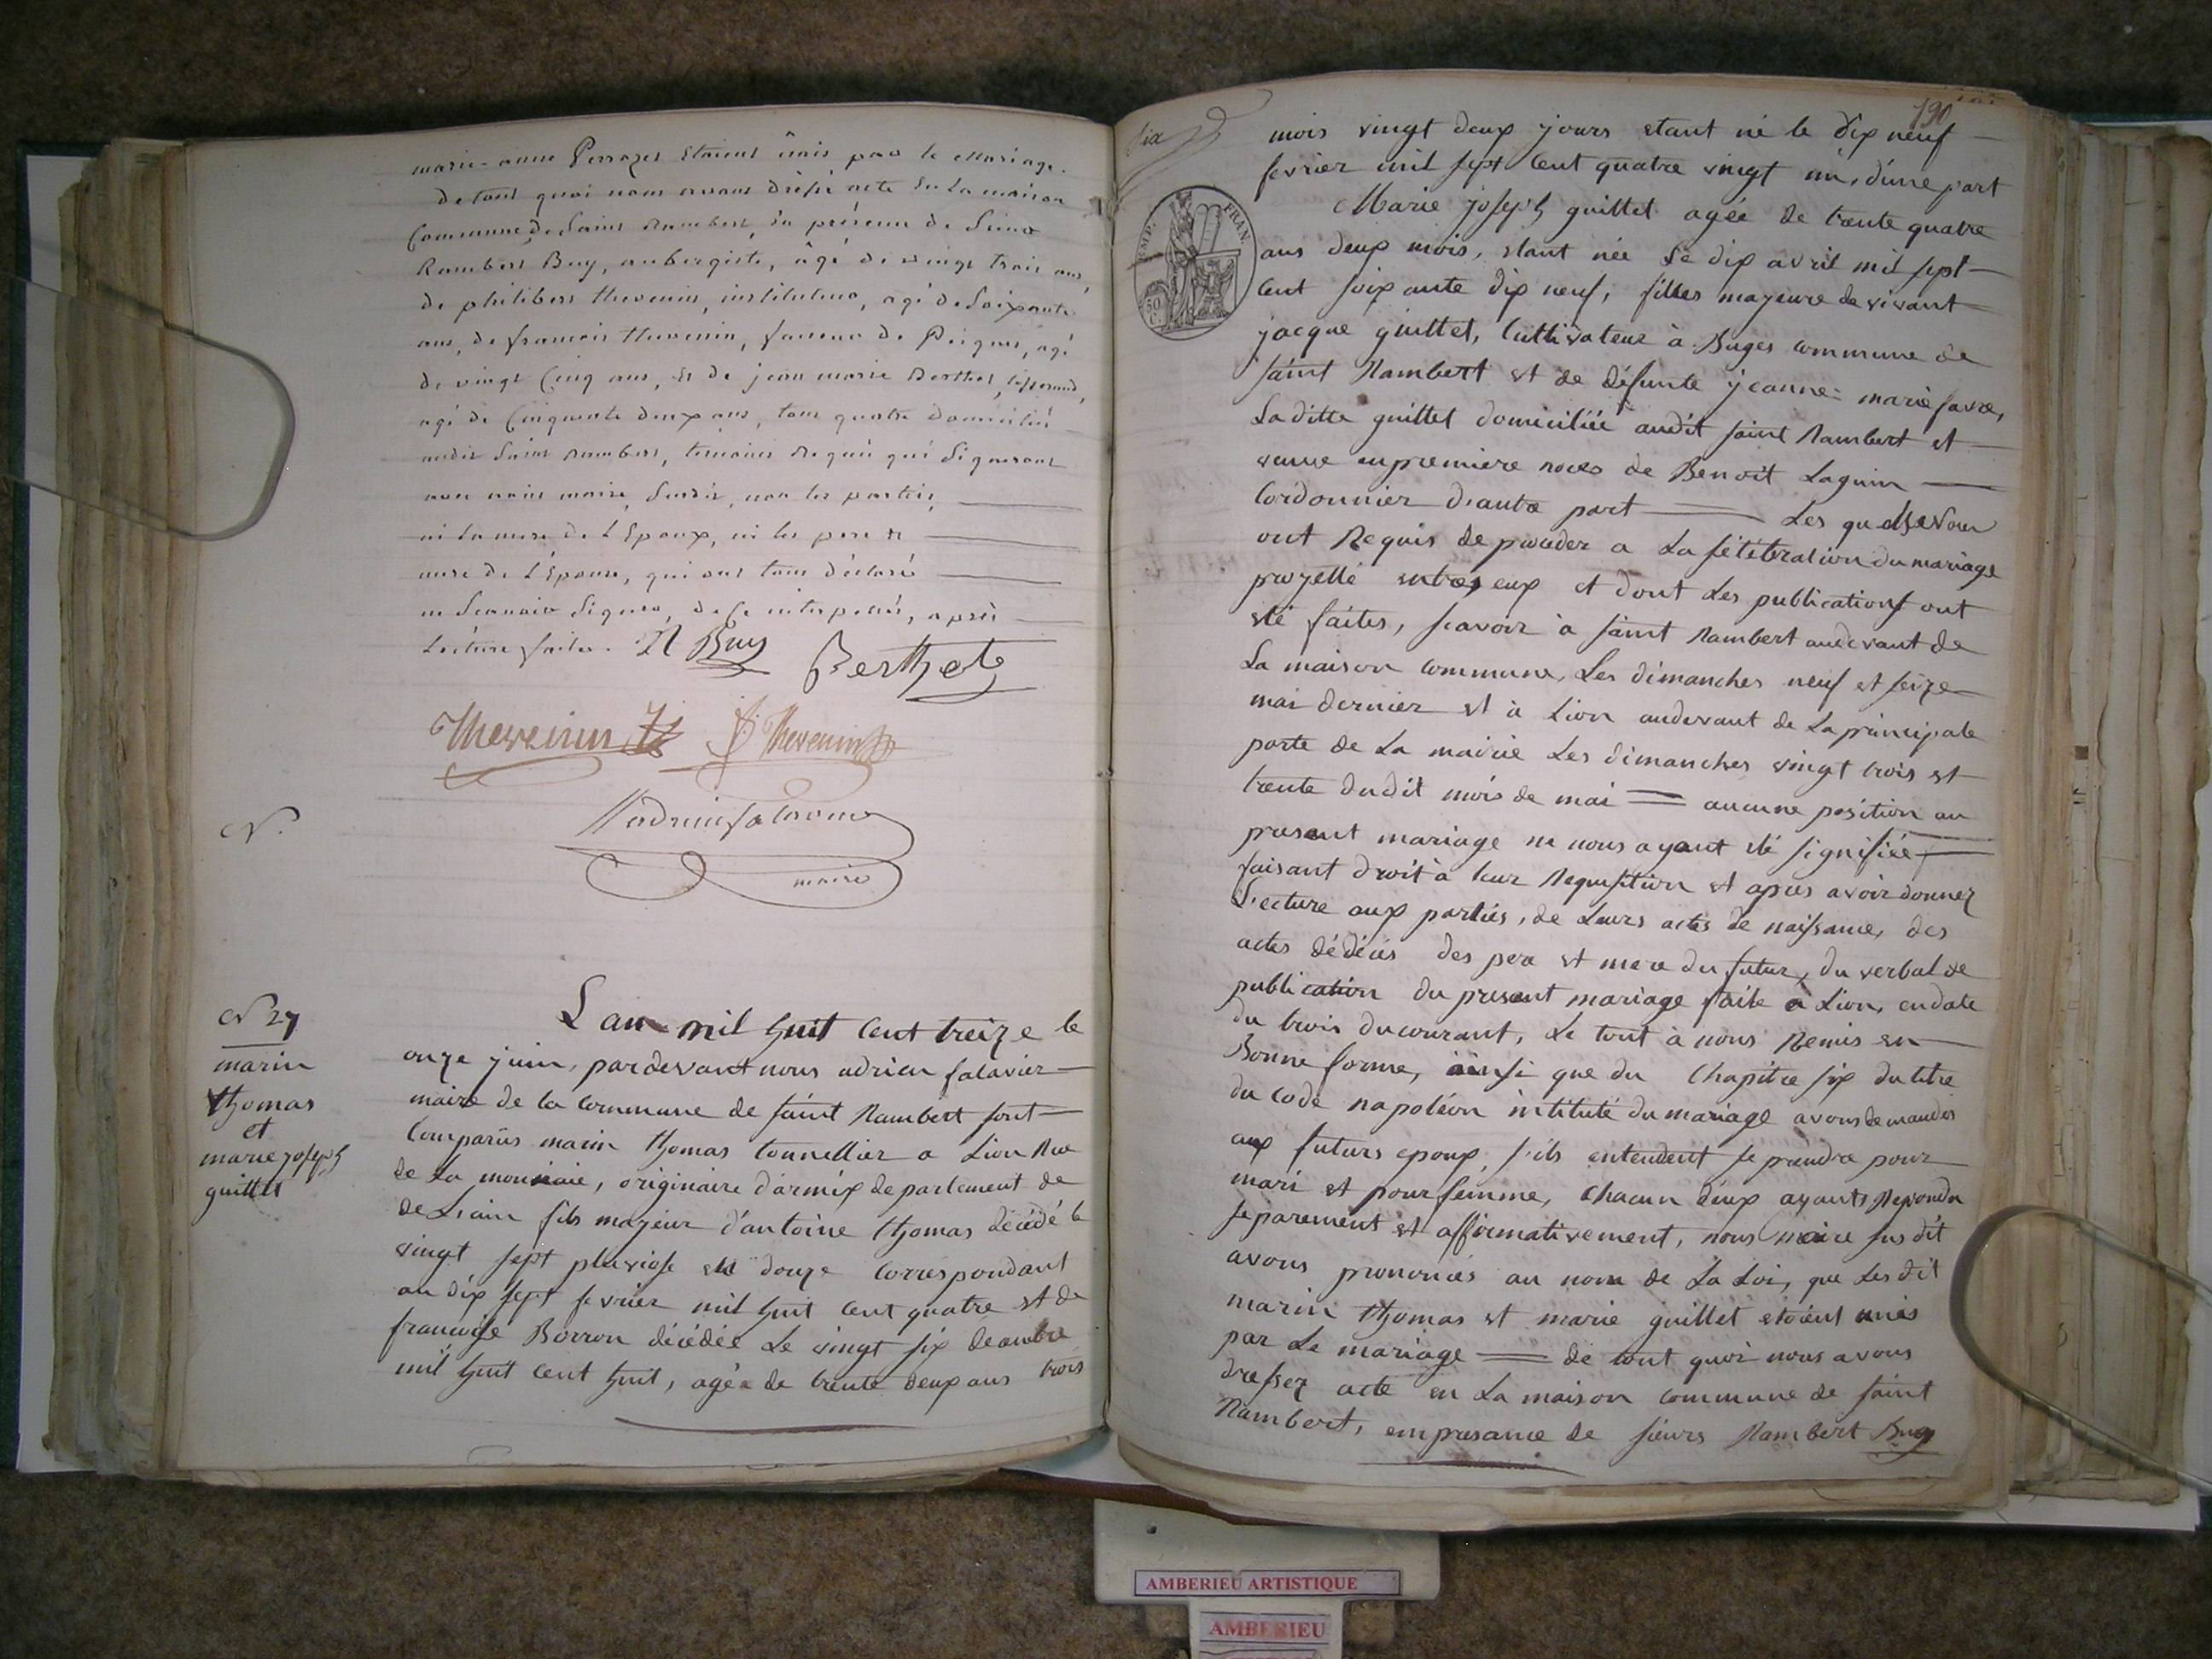 marie-anne Perrozet etaient unis par le Mariage.
de tout quoi nous avons dressé acte en la maison
Commune de Saint Rambert, en présence de Sieurs
Rambert Buy, aubergiste, âgé de vingt trois ans,
de philibert thevenin, instituteur, agé de soixante
ans, de francois thevenin, faiseur de Peignes, agé
de vingt Cinq ans, et de jean marie Berthet,
agé de Cinquante deux ans, tous quatre domiciliés
audit Saint Rambert, témoins requis qui Signeront
avec nous maire, Susdit, non les parties,
ni la mere de L'Epoux, ni les pere et
mere de L'Epouse, qui ont tous déclaré
ne Scavoir Signer, de ce interpellés, après
Lecture faite. R Buy Berthet
Thevenin f. Thevenin
maire
N.
N 27
marin
thomas
et
marie joseph
guittet
L'an mil huit Cent treize le
onze juin, pardevant nous adrien salavier
maire de la Commune de saint Rambert sont
Comparüs marin thomas tonnellier a Lion Rue
de La monnaie, originaire d'armix departement de
de L'ain fils majeur d'antoine thomas décédé le
vingt sept pluviose an douze Correspondant
au dix sept fevrier mil huit Cent quatre et de
francoise Borron décédée Le vingt six
mil huit Cent huit, agé de trente deux ans trois
six
190
EMP. FRAN.
50 C
mois vingt deux jours etant né le dix neuf
fevrier mil sept Cent quatre vingt un, d'une part
Marie joseph guittet agée de trente quatre
ans deux mois, etant née Le dix avril mil sept
Cent soixante dix neuf, filles majeure de vivant
jacque guittet, Cultivateur à Buges Commune de
saint Rambert et de défunte jeanne-marie favre,
La ditte guittet domiciliée audit saint Rambert et
veuve en premiere noces de Benoit Laguin
Cordonnier d'autre part Les quels nous
ont Requis de proceder a La sélébration du mariage
projetté entre eux et dont Les publications ont
eté faites, scavoir à saint Rambert audevant de
La maison Commune, Les dimanches neuf et seize
mai dernier et à Lion audevant de La principale
porte de La mairie Les dimanches vingt trois et
trente dudit mois de mai aucune position au
present mariage ne nous ayant eté signifiée
faisant droit à leur Requisition et apres avoir donnez
Lecture aux parties, de Leurs actes de naissance, des
actes dédécès des pere et mere du futur, du verbal de
publication du present mariage faite a Lion, en date
du trois du courant, Le tout à nous Remis en
Bonne forme, ainsi que du Chapitre six du titre
du Code napoléon intitulé du mariage avons demandés
aux futurs epoux, s'ils entendent se prendre pour
mari et pour femme, Chacun d'eux ayant Repondu
separement et affirmativement, nous maire sus dit
avons prononcés au nom de La Loi, que Les dit
marin thomas et marie guittet etoient unis
par Le mariage de tout quoi nous avons
dressez acte en La maison Commune de saint
Rambert, en presance de sieurs Rambert Buy
AMBERIEU ARTISTIQUE
AMBERIEU